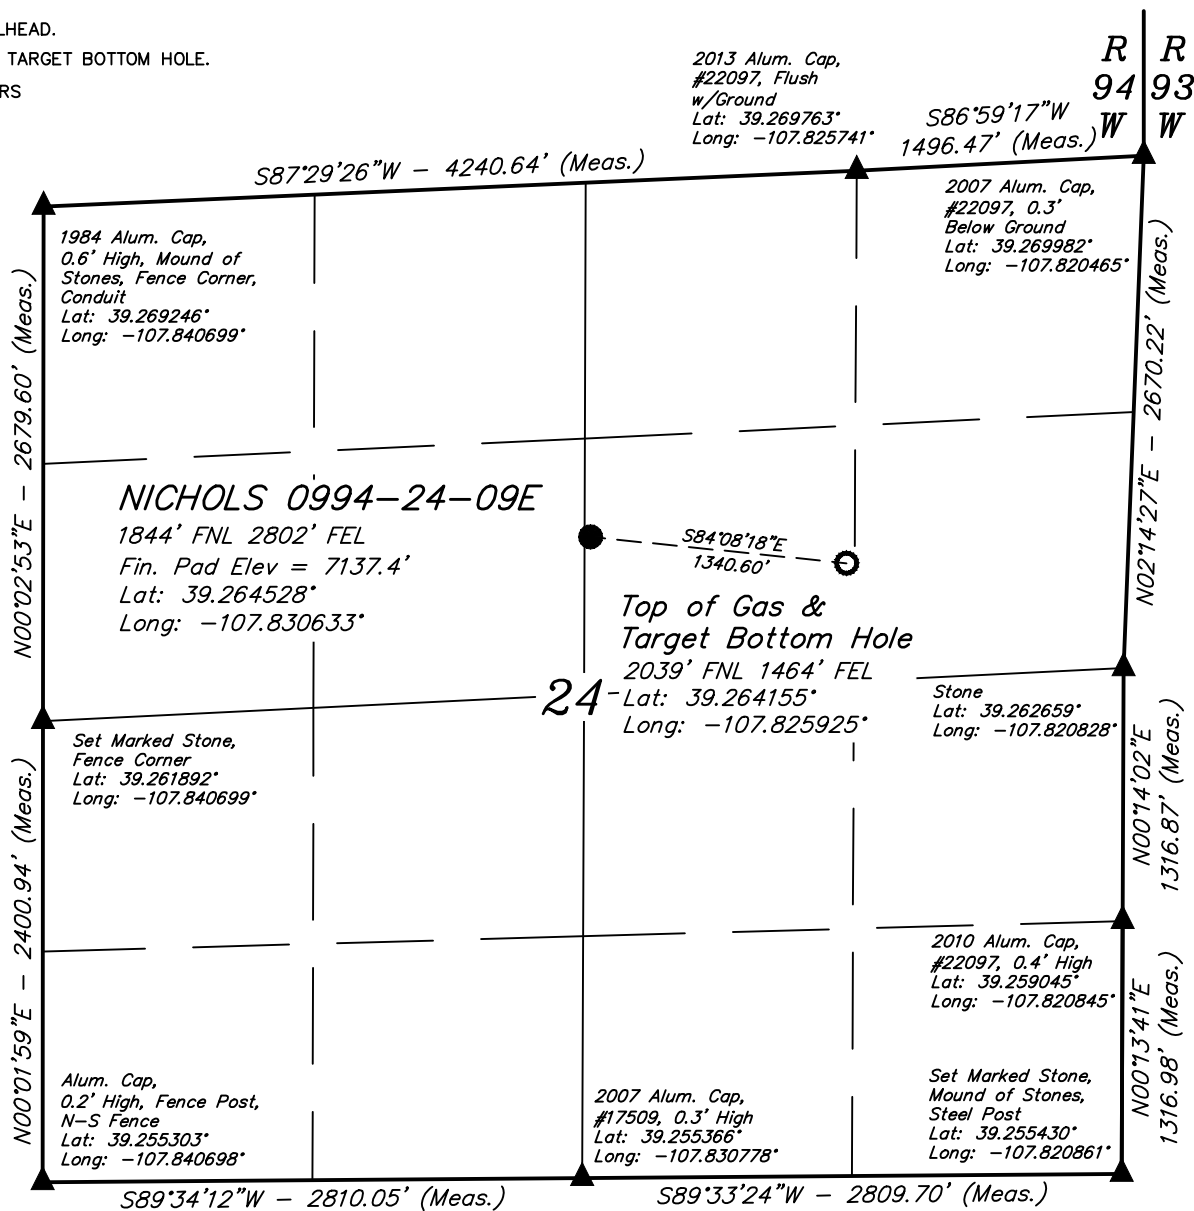 LHEAD.
TARGET BOTTOM HOLE.
RS
R R
94 93
W W
2013 Alum. Cap,
#22097, Flush
w/Ground
Lat: 39.269763°
Long: -107.825741°
S86°59'17"W
1496.47' (Meas.)
S87°29'26"W - 4240.64' (Meas.)
2007 Alum. Cap,
#22097, 0.3'
Below Ground
Lat: 39.269982°
Long: -107.820465°
1984 Alum. Cap,
0.6' High, Mound of
Stones, Fence Corner,
Conduit
Lat: 39.269246°
Long: -107.840699°
N00°02'53"E - 2679.60' (Meas.)
N02°14'27"E - 2670.22' (Meas.)
NICHOLS 0994-24-09E
1844' FNL 2802' FEL
Fin. Pad Elev = 7137.4'
Lat: 39.264528°
Long: -107.830633°
S84°08'18"E
1340.60'
Top of Gas &
Target Bottom Hole
2039' FNL 1464' FEL
Lat: 39.264155°
Long: -107.825925°
24
Stone
Lat: 39.262659°
Long: -107.820828°
Set Marked Stone,
Fence Corner
Lat: 39.261892°
Long: -107.840699°
N00°14'02"E
1316.87' (Meas.)
N00°01'59"E - 2400.94' (Meas.)
2010 Alum. Cap,
#22097, 0.4' High
Lat: 39.259045°
Long: -107.820845°
N00°13'41"E
1316.98' (Meas.)
Alum. Cap,
0.2' High, Fence Post,
N-S Fence
Lat: 39.255303°
Long: -107.840698°
2007 Alum. Cap,
#17509, 0.3' High
Lat: 39.255366°
Long: -107.830778°
Set Marked Stone,
Mound of Stones,
Steel Post
Lat: 39.255430°
Long: -107.820861°
S89°34'12"W - 2810.05' (Meas.)
S89°33'24"W - 2809.70' (Meas.)